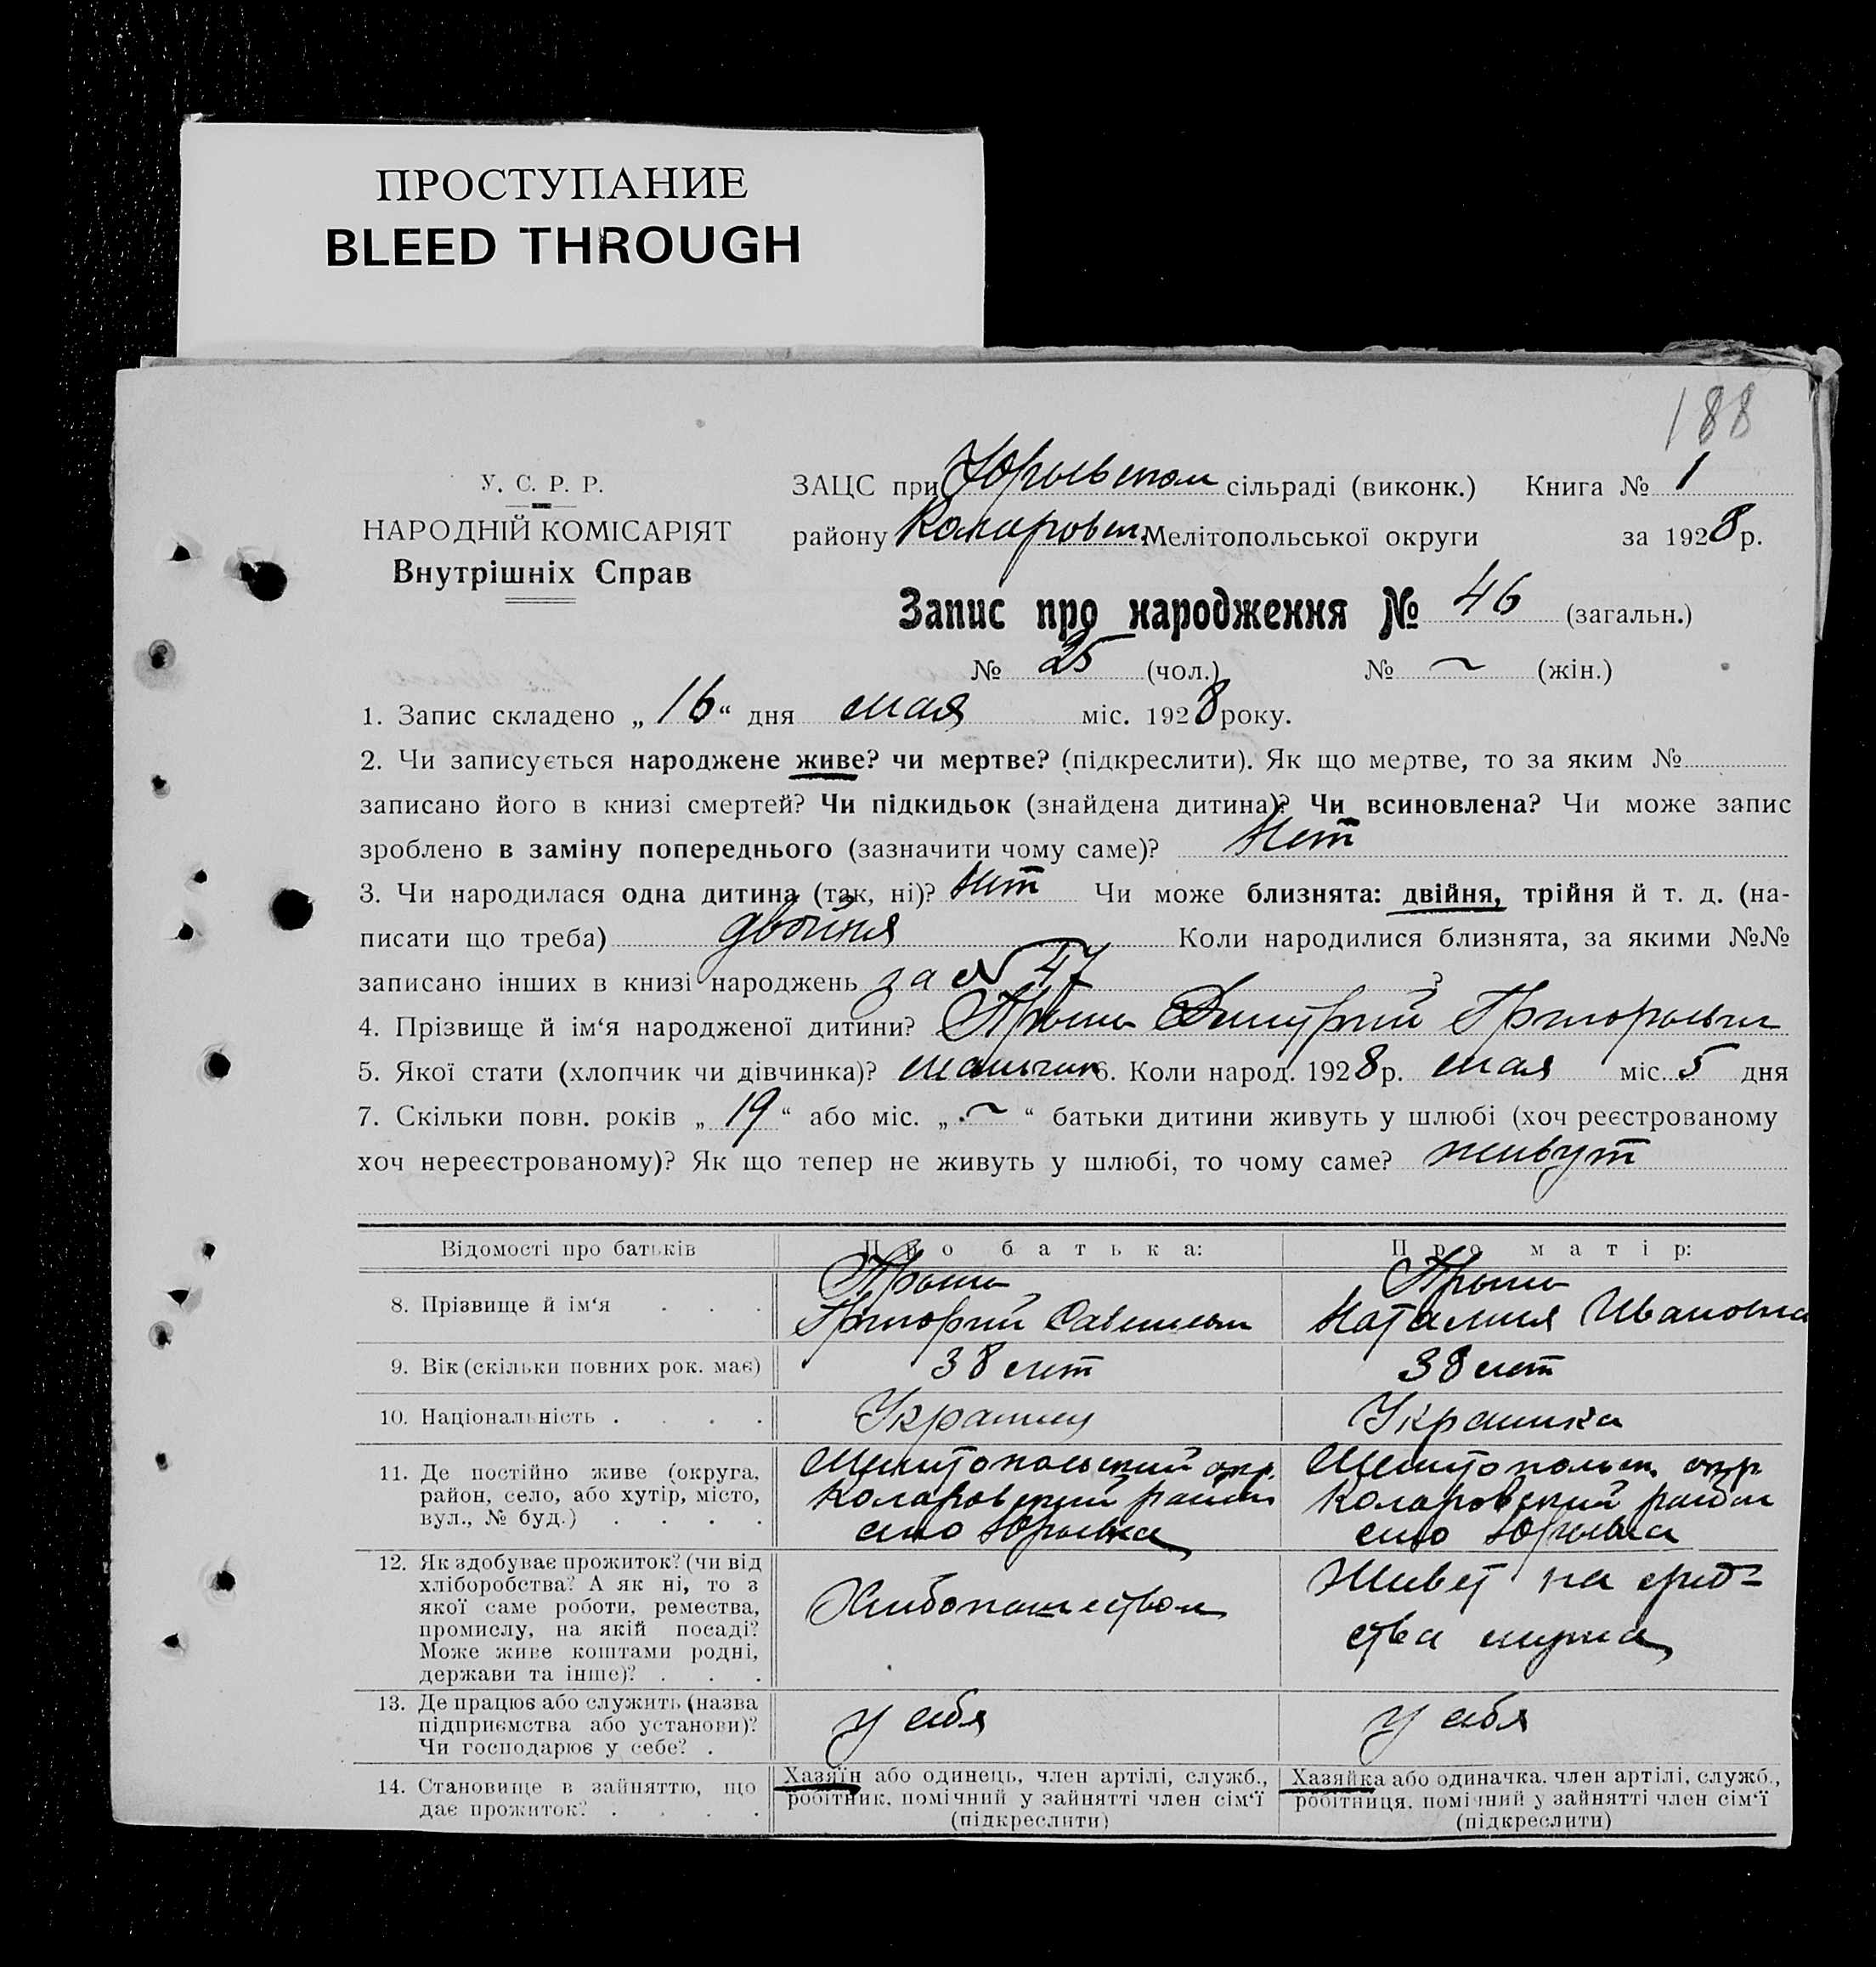 ПРОСТУПАНИЕ
BLEED THROUGH
188
У. С. Р. Р.
НАРОДНІЙ КОМІСАРІЯТ
Внутрішніх Справ
ЗАЦС при Юрьевском сільраді (виконк.) Книга № 1
району Коларовск. Мелітопольської округи за 1928 р.
Запис про народження № 46 (загальн.)
№ 25 (чол.) № ~ (жін.)
1. Запис складено „ 16 “ дня мая міс. 1928 року.
2. Чи записується народжене живе? чи мертве? (підкреслити). Як що мертве, то за яким №
записано його в книзі смертей? Чи підкидьок (знайдена дитина)? Чи всиновлена? Чи може запис
зроблено в заміну попереднього (зазначити чому саме)? Нет
3. Чи народилася одна дитина (так, ні)? нет Чи може близнята: двійня, трійня й т. д. (на-
писати що треба) двойня Коли народилися близнята, за якими №№
записано інших в книзі народжень за N 47 ?
4. Прізвище й ім‘я народженої дитини? Дмитрий Григорьев
5. Якої стати (хлопчик чи дівчинка)? мальчик 6. Коли народ. 1928 р. мая міс. 5 дня
7. Скільки повн. років „ 19 “ або міс. „ ~ “ батьки дитини живуть у шлюбі (хоч реєстрованому
хоч нереєстрованому)? Як що тепер не живуть у шлюбі, то чому саме? живут
Відомості про батьків Про батька: Про матір:
8. Прізвище й ім‘я . . .
Григорий Савельев
Наталия Ивановна
9. Вік (скільки повних рок. має) 38 лет 38 лет
10. Національність . . . . Украинец Украинка
11. Де постійно живе (округа,
район, село, або хутір, місто,
вул., № буд.) . . . .
Мелитопольский окр.
Коларовский район
село Юрьевка
Мелитопольск. окр.
Коларовский район
село Юрьевка
12. Як здобуває прожиток? (чи від
хліборобства? А як ні, то з
якої саме роботи, ремества,
промислу, на якій посаді?
Може живе коштами родні,
держави та інше)? . . .
Хлебопашеством
Живет на сред-
ства мужа
13. Де працює або служить (назва
підприємства або установи)?
Чи господарює у себе? .
у себя
у себя
14. Становище в зайняттю, що
дає прожиток? . . . .
Хазяїн або одинець, член артілі, служб.,
робітник, помічний у зайнятті член сім‘ї
(підкреслити)
Хазяйка або одиначка, член артілі, служб.,
робітниця, помічний у зайнятті член сім‘ї
(підкреслити)